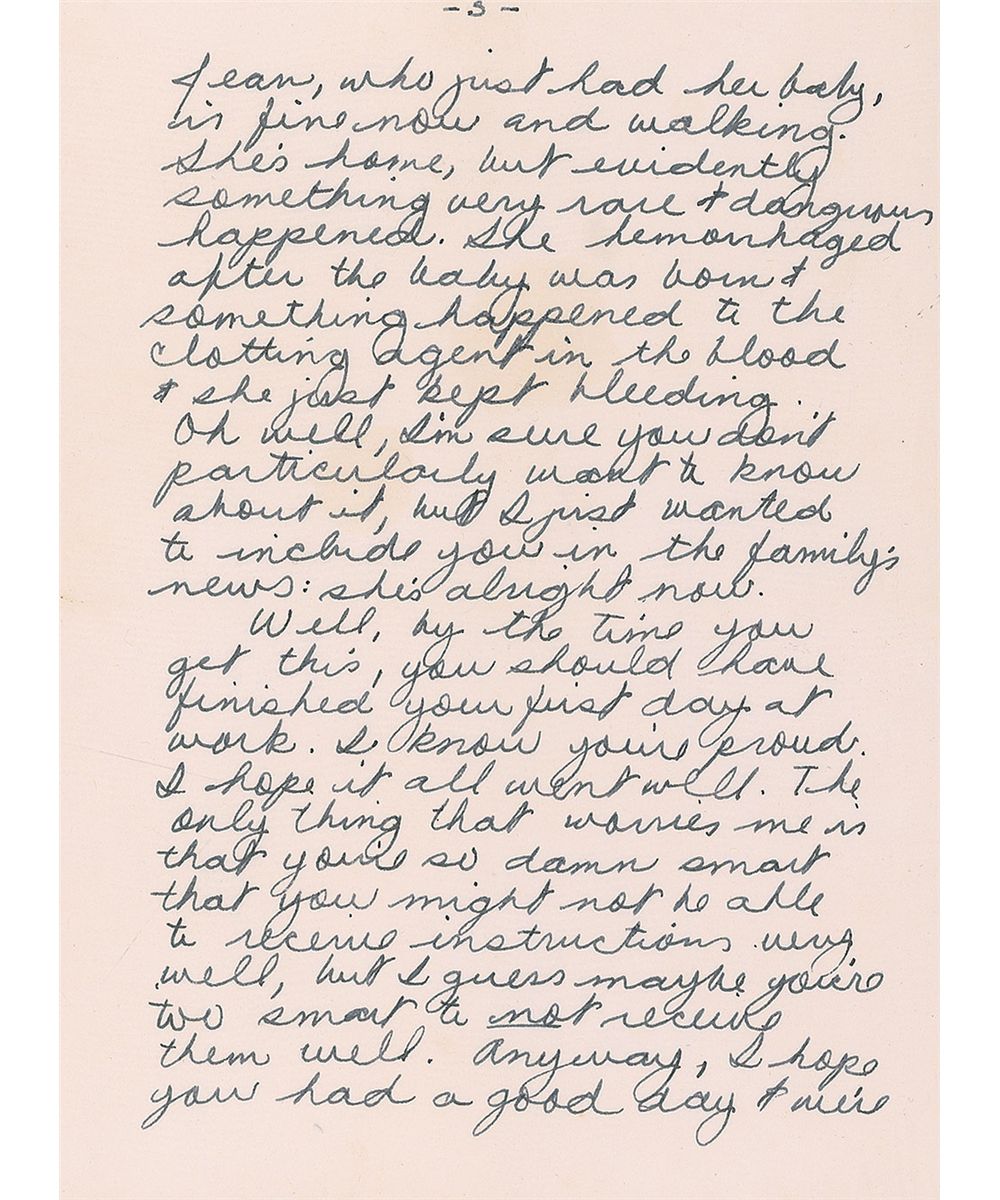 - 3 -
Jean, who just had her baby,
is fine now and walking.
She's home, but evidently
something very rare & dangerous
happened. She hemorrhaged
after the baby was born &
something happened to the
clotting agent in the blood
& she just kept bleeding.
Oh well, I'm sure you don't
particularly want to know
about it, but I just wanted
to include you in the family's
news: she's alright now.
Well, by the time you
get this, you should have
finished your first day at
work. I know you're proud.
I hope it all went well. The
only thing that worries me is
that you're so damn smart
that you might not be able
to receive instructions very
well, but I guess maybe you're
too smart to not receive
them well. Anyway, I hope
you had a good day & we're